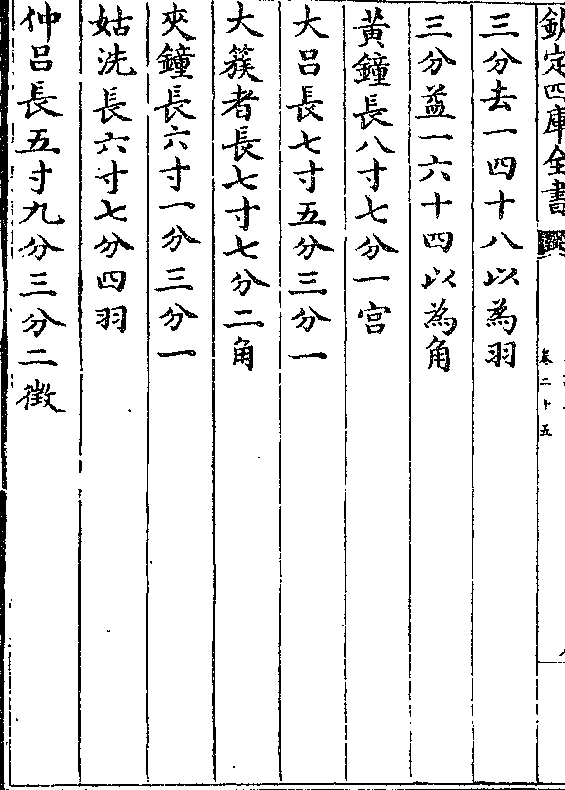 欽定四庫全書
卷二十五
三分去一四十八以為羽
三分益一六十四以為角
黃鐘長八寸七分一宮
大呂長七寸五分三分一
大簇者長七寸七分二角
夾鐘長六寸一分三分一
姑洗長六寸七分四羽
仲呂長五寸九分三分二徵